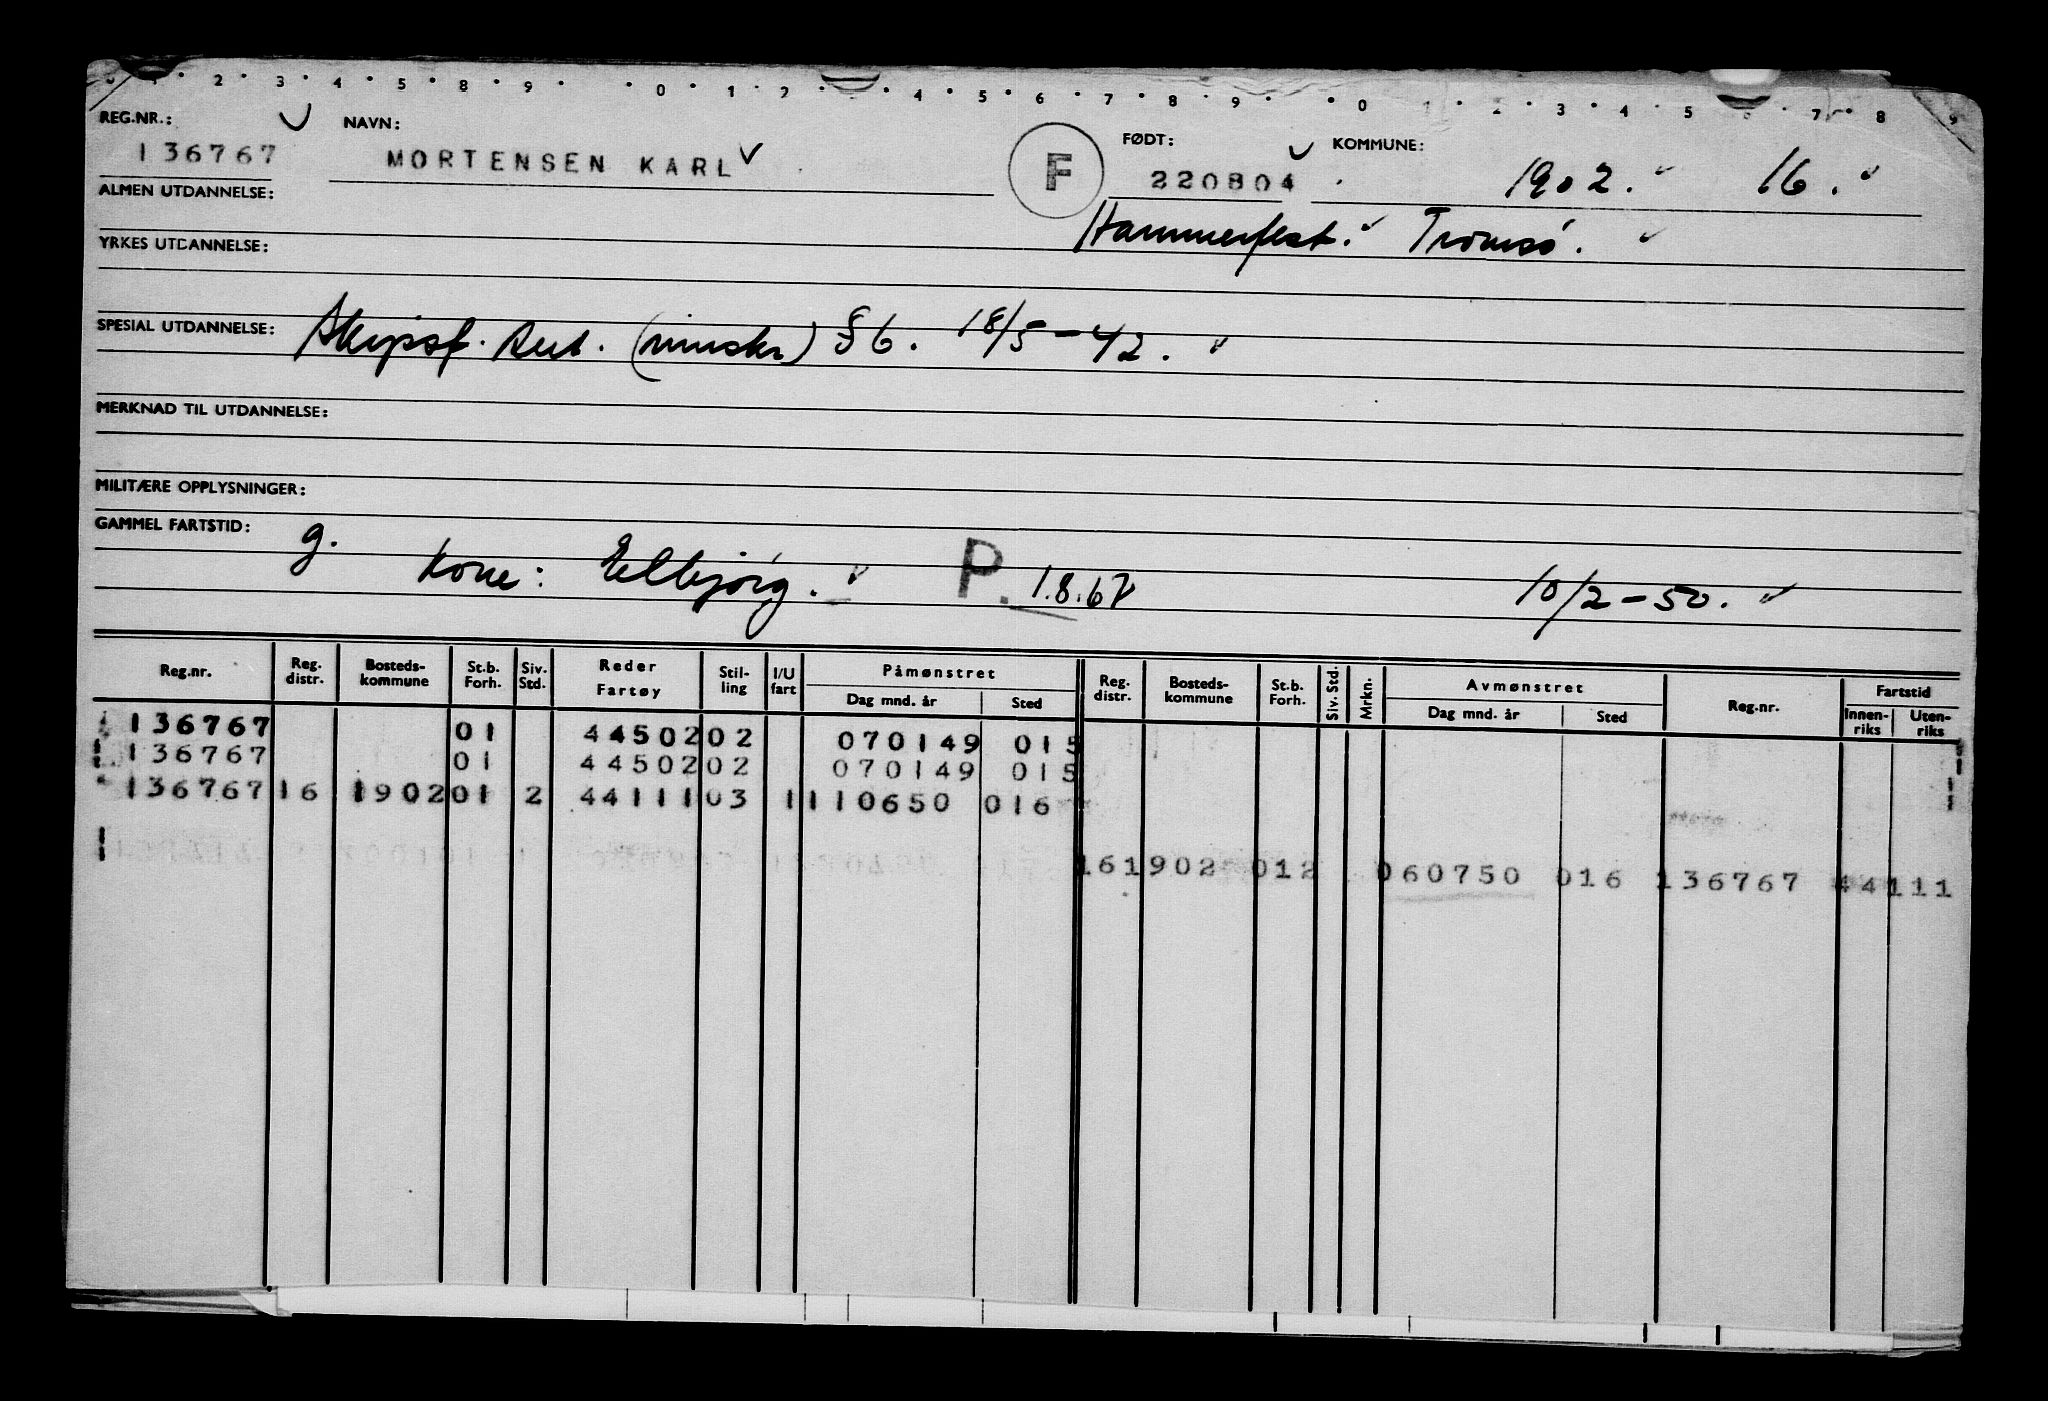 1 2 3 4 5 8 9 0 1 2 4 5 6 7 8 9 0 1 2 3 4 5 7 8 9
REG.NR.: NAVN: FØDT: KOMMUNE:
136767 MORTENSEN KARL F 220804 1902. 16.
ALMEN UTDANNELSE: Hammerfest. Tromsø.
YRKES UTDANNELSE:
SPESIAL UTDANNELSE: Skipsf. (minskr) §6. 18/5-42.
MERKNAD TIL UTDANNELSE:
MILITÆRE OPPLYSNINGER:
GAMMEL FARTSTID: g.
Kone: Ellbjørg. P. 1.8.67 10/2-50.
Reg.nr. Reg. distr. Bosteds-kommune St.b. Forh. Siv. Std. Reder Fartøy Stil-ling I/U fart Påmønstret Dag mnd. år Sted Reg. distr. Bosteds-kommune St.b. Forh. Siv. Std. Mrkn. Avmønstret Dag mnd. år Sted Reg.nr. Fartstid Innen-riks Uten-riks
136767 01 44502 02 070149 015
136767 01 44502 02 070149 015
136767 16 1902 01 2 44111 03 1 110650 016
16 1902 01 2 060750 016 136767 44111